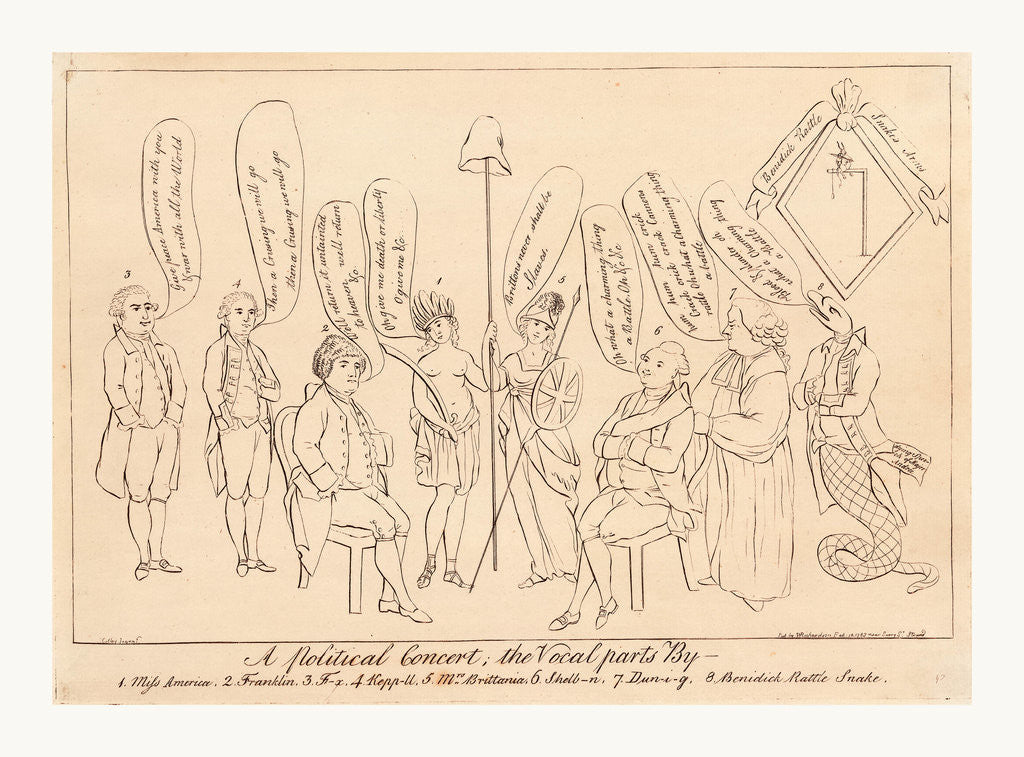 3
Give peace America with you
& war with all the World
4
Then a Crusing we will go
then a Crusing we will go
2
Well return it untainted
to heaven well return
&c
1
Oh give me death or liberty
O give me &c
Brittons never shall be
Slaves.
5
Oh what a charming thing
a Battle. Oh &c &c
6
hum hum crick
hum crick crack Cannons
Crack crick charming thing
rade Oh what a charming thing
a battle
7
Blood & plunder oh
what a Charming thing
a Battle
8
Benidick Rattle
Snake's Arms
Colley Invent.
Pub. by W Richardson Feb. 18. 1783 near Surry St. Strand
A Political Concert; the Vocal parts By —
1. Miss America. 2. Franklin. 3. F–x. 4 Kepp–ll. 5. Mrs. Brittania. 6. Shelb–n. 7. Dun–i–g. 8. Benidick Rattle Snake.